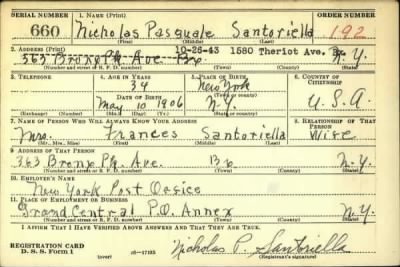 SERIAL NUMBER 1. NAME (Print) ORDER NUMBER
660 Nicholas Pasquale Santoriella 192
(First) (Middle) (Last)
2. ADDRESS (Print) 10-26-43 1580 Theriot Ave. Bx.
563 Bronx Pk. Ave. Bx. N.Y.
(Number and street or R. F. D. number) (Town) (County) (State)
3. TELEPHONE 4. AGE IN YEARS 5. PLACE OF BIRTH 6. COUNTRY OF CITIZENSHIP
34 New York
DATE OF BIRTH (Town or county)
May 10 1906 N.Y. U.S.A.
(Exchange) (Number) (Mo.) (Day) (Yr.) (State or country)
7. NAME OF PERSON WHO WILL ALWAYS KNOW YOUR ADDRESS 8. RELATIONSHIP OF THAT PERSON
Mrs. Frances Santoriella Wife
(Mr., Mrs., Miss) (First) (Middle) (Last)
9. ADDRESS OF THAT PERSON
363 Bronx Pk. Ave. Bx. N.Y.
(Number and street or R. F. D. number) (Town) (County) (State)
10. EMPLOYER'S NAME
New York Post Office
11. PLACE OF EMPLOYMENT OR BUSINESS
Grand Central P.O. Annex N.Y.
(Number and street or R. F. D. number) (Town) (County) (State)
I AFFIRM THAT I HAVE VERIFIED ABOVE ANSWERS AND THAT THEY ARE TRUE.
REGISTRATION CARD
D. S. S. Form 1 (over) 16-17105 Nicholas P. Santoriella
(Registrant's signature)